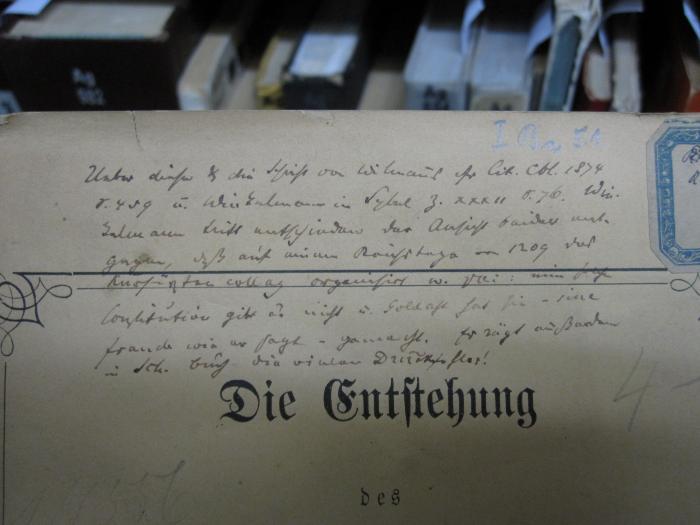 Ag
932
I
Ueber diese & die Schrift von Wilmans cfr. Lit. Cbl. 1874
S. 459 u. Winkelmann in Sybel Z. XXXII S. 76. Win-
kelmann tritt entschieden der Ansicht beider ent-
gegen, daß auf einem Reichstage von 1209 das
Kurfürstencolleg organisirt w. sei: eine
Constitution gibt es nicht u. Goldast hat sie - sine
fraude wie er sagt - gemacht. Er rügt außerdem
in Sch. Buch die vielen Druckfehler!
Die Entstehung
des